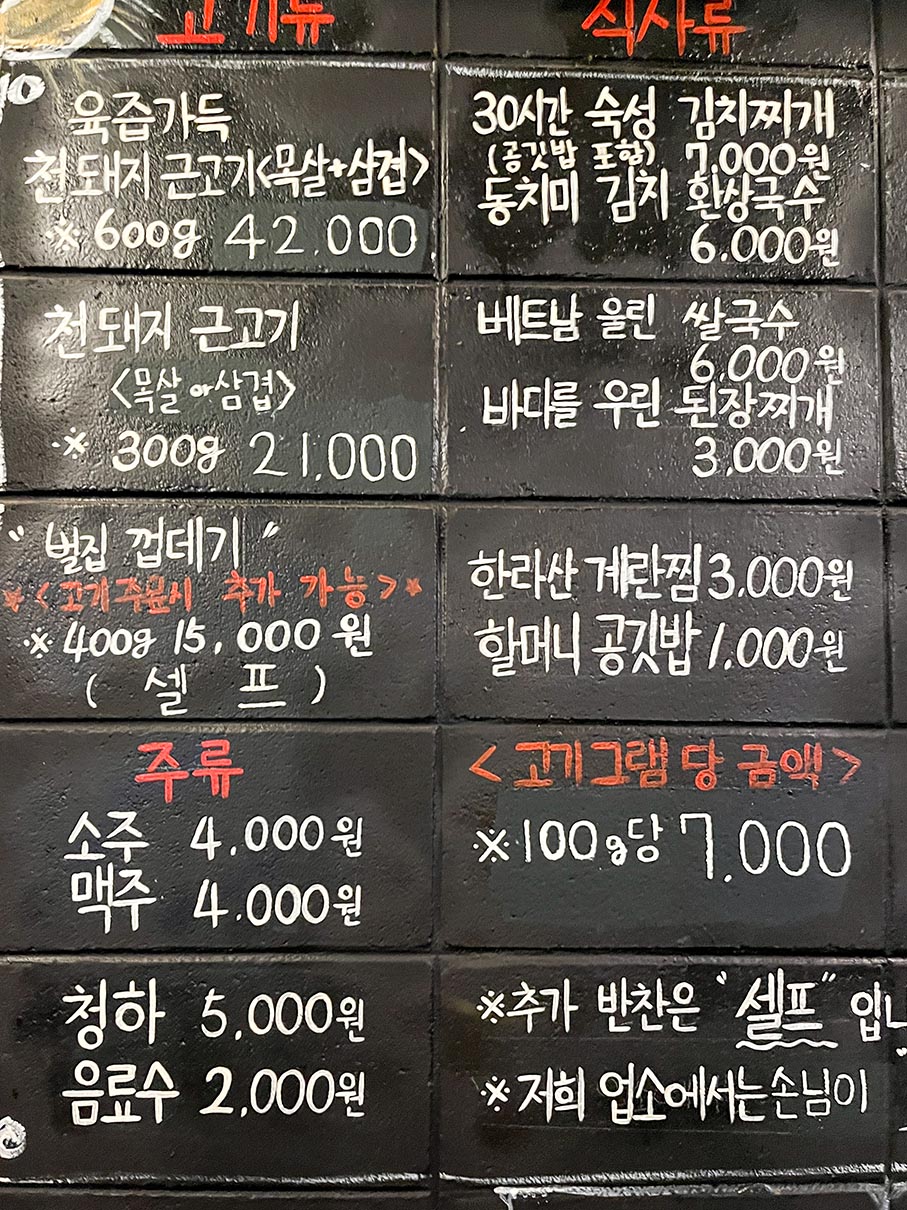 고기류
육즙가득
천돼지 근고기<목살+삼겹>
※ 600g 42,000
천돼지 근고기
<목살 or 삼겹>
※ 300g 21,000
"벌집 껍데기"
*<고기주문시 추가 가능>*
※ 400g 15,000원
(셀 프)
주류
소주 4,000원
맥주 4,000원
청하 5,000원
음료수 2,000원
식사류
30시간 숙성 김치찌개
(공깃밥 포함) 7,000원
동치미 김치 환상국수
6,000원
베트남 울린 쌀국수
6,000원
바다를 우린 된장찌개
3,000원
한라산 계란찜 3,000원
할머니 공깃밥 1,000원
<고기그램당 금액>
※100g당 7,000
※추가 반찬은 "셀프"입니
※저희 업소에서는 손님이